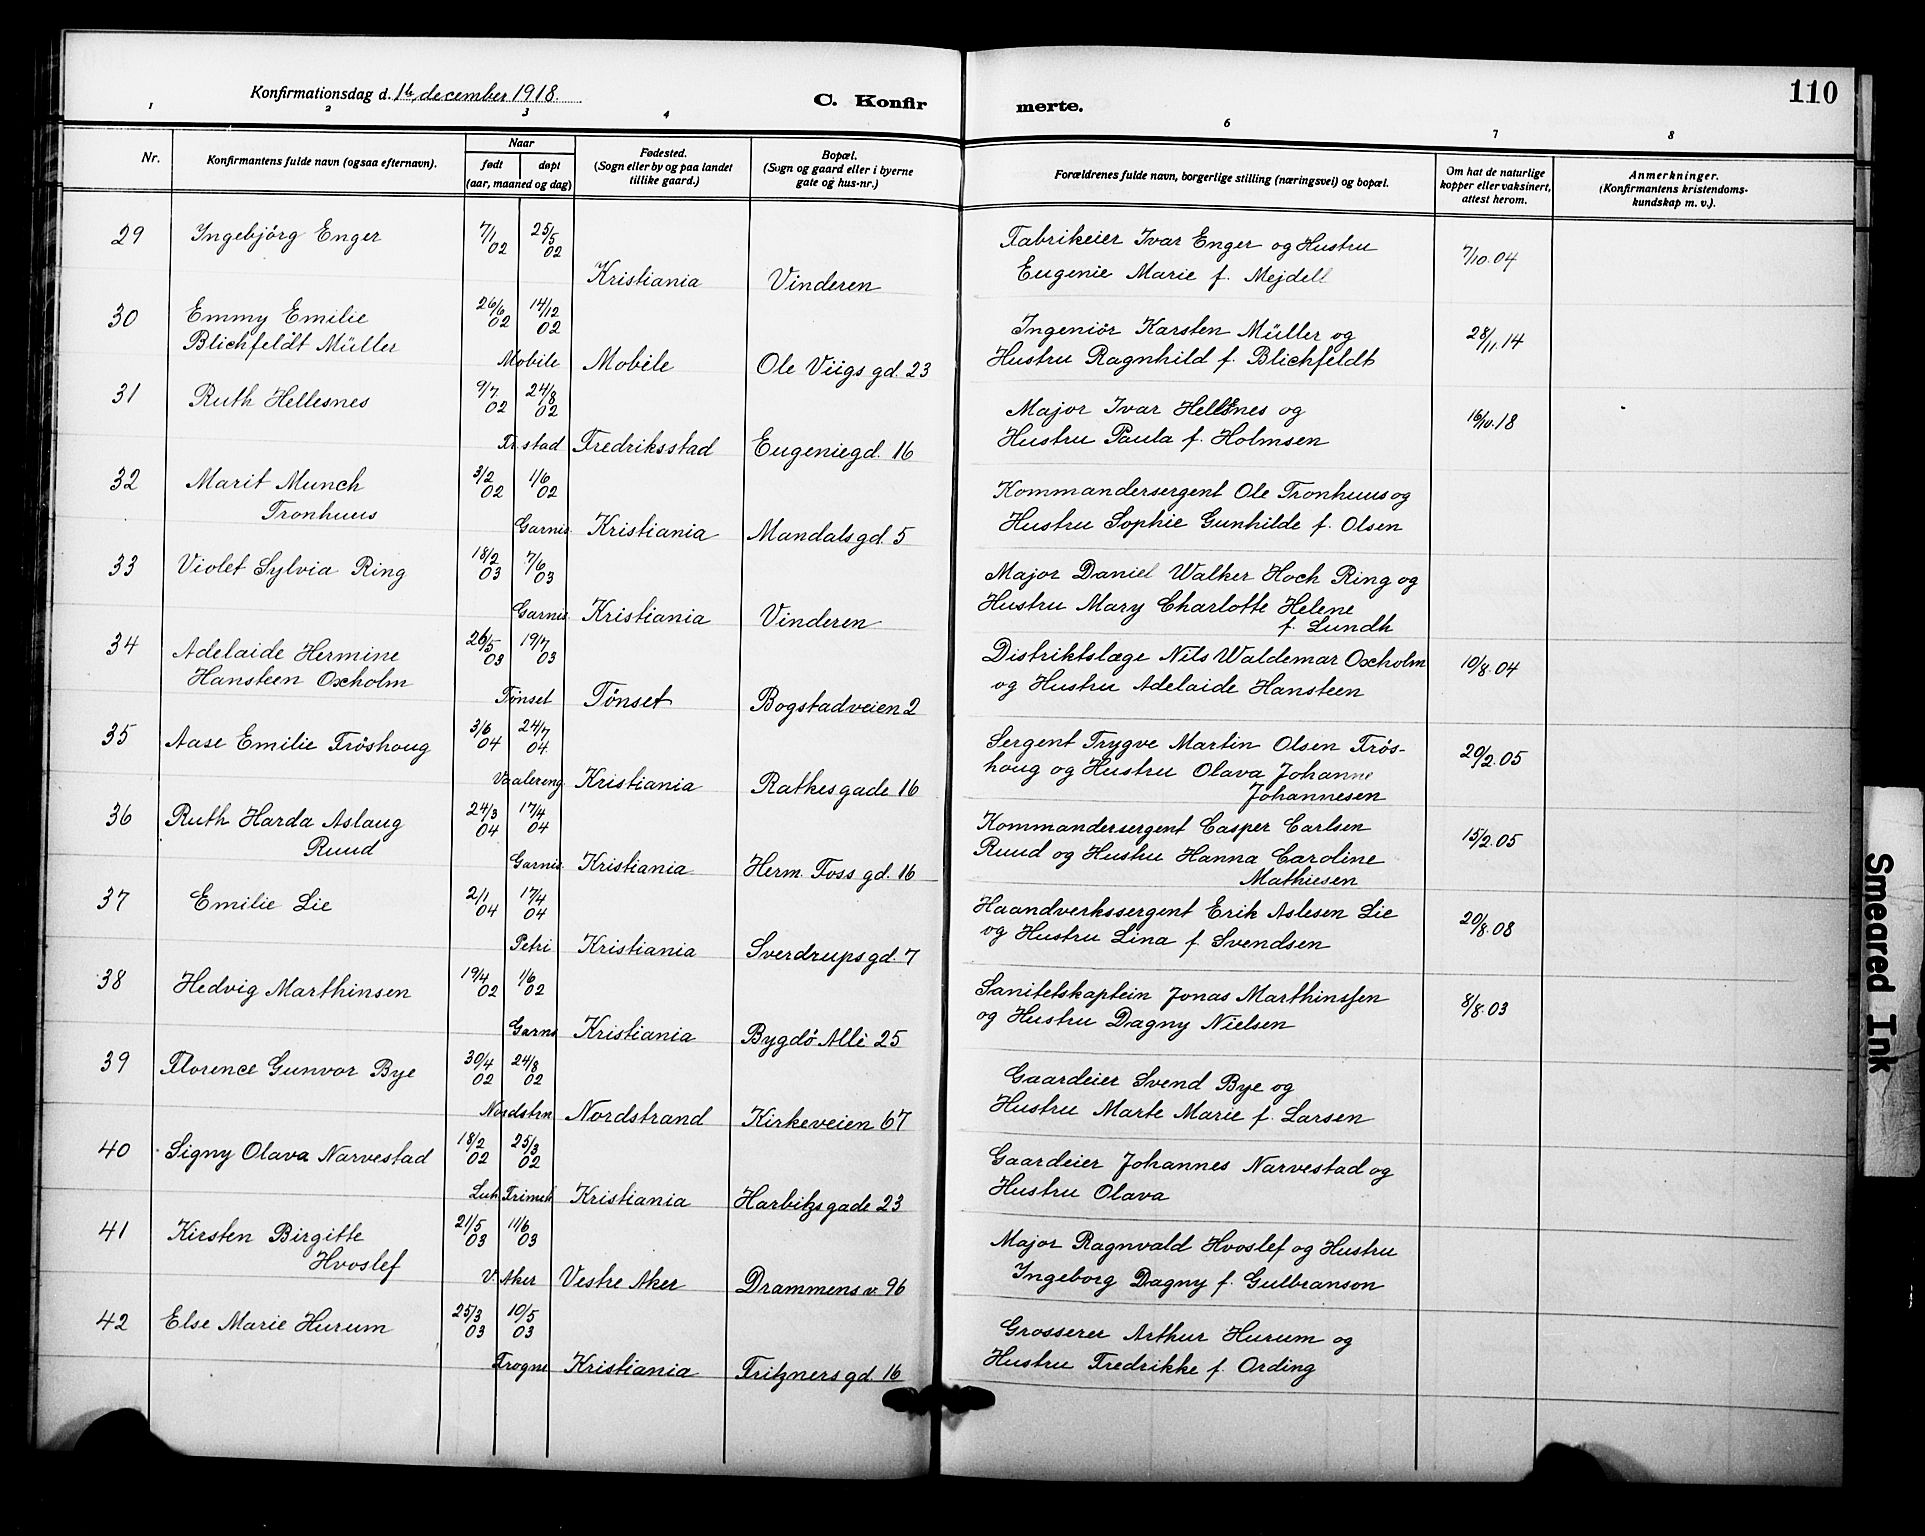 Konfirmationsdag d. 16 december 1918.
C. Konfir
merte.
110
1 2 3 4 6 7 8
Nr.
Konfirmantens fulde navn (ogsaa efternavn).
Naar
født døpt
(aar, maaned og dag)
Fødested.
(Sogn eller by og paa landet
tillike gaard.)
Bopæl.
(Sogn og gaard eller i byerne
gate og hus-nr.)
Forældrenes fulde navn, borgerlige stilling (næringsvei) og bopæl.
Om hat de naturlige
kopper eller vaksinert,
attest herom.
Anmerkninger.
(Konfirmantens kristendoms-
kundskap m. v.).
29 Ingebjörg Enger 7/1 02 25/5 02 Fabrikeier Ivar Enger og Hustru 7/10.04
Kristiania Vinderen Eugenie Marie f. Mejdell
30 Emmy Emilie 26/6 02 14/12 02 Ingeniör Karsten Müller og 28/11.14
Blichfeldt Müller Mobile Mobile Ole Viigs gd. 23 Hustru Ragnhild f. Blichfeldt
31 Ruth Hellesnes 9/7 02 24/8 02 Major Ivar Hellesnes og 16/10.18
Fr.stad Fredriksstad Eugeniegd. 16 Hustru Paula f. Holmsen
32 Marit Munch 3/2 02 1/6 02 Kommandersergent Ole Tronhuus og
Tronhuus Garnis. Kristiania Mandals gd. 5 Hustru Sophie Gunhilde f. Olsen
33 Violet Sylvia Ring 18/2 03 7/6 03 Major Daniel Walker Hoch Ring og
Garnis. Kristiania Vinderen Hustru Mary Charlotte Helene
f. Lundh
34 Adelaide Hermine 26/5 03 19/7 03 Distriktslæge Nils Waldemar Oxholm 10/8.04
Hansteen Oxholm Tönset Tönset Bogstadveien 2 og Hustru Adelaide Hansteen
35 Aase Emilie Fröshoug 3/6 04 24/7 04 Sergent Trygve Martin Olsen Frös- 20/2.05
Vaalereng Kristiania Ratkes gade 16 houg og Hustru Olava Johanne
Johannesen
36 Ruth Harda Aslaug 24/3 04 17/4 04 Kommandersergent Casper Carlsen 15/2.05
Ruud Garnis. Kristiania Herm. Foss gd. 16 Ruud og Hustru Hanna Caroline
Mathiesen
37 Emilie Lie 2/1 04 17/4 04 Haandverkssergent Erik Aslesen Lie 20/8.08
Petri Kristiania Sverdrups gd. 7 og Hustru Lina f. Svendsen
38 Hedvig Marthinsen 19/4 02 1/6 02 Sanitetskaptein Jonas Marthinssen 8/8.03
Garns Kristiania Bygdö Allé 25 og Hustru Dagny Nielsen
39 Florence Gunvor Bye 30/4 02 24/8 02 Gaardeier Svend Bye og
Nordstrn Nordstrand Kirkeveien 67 Hustru Marte Marie f. Larsen
40 Signy Olava Narvestad 18/2 02 25/3 02 Gaardeier Johannes Narvestad og
Luth. Frimen. Kristiania Harbitzs gade 23 Hustru Olava
41 Kirsten Birgitte 21/5 03 11/6 03 Major Ragnvald Hvoslef og Hustru
Hvoslef V. Aker Vestre Aker Drammens v. 96 Ingeborg Dagny f. Gulbranson
42 Else Marie Hurum 25/3 03 10/5 03 Grosserer Arthur Hurum og
Frogne Kristiania Fritzners gd. 16 Hustru Fredrikke f. Ording
Smeared Ink